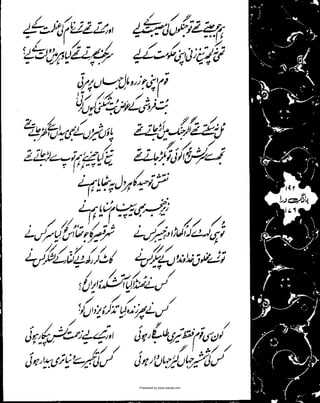 ہم جو جیتے تھے تو جنگوں کی مصیبت کے لیے اور مرتے تھے ترے نام کی عظمت کے لیے
تھی نہ کچھ تیغ زنی اپنی حکومت کے لیے سر بکف پھرتے تھے کیا دہر میں دولت کے لیے؟
قوم اپنی جو زر و مالِ جہاں پر مرتی
بت فروشی کے عوض بت شکنی کیوں کرتی!
ٹل نہ سکتے تھے اگر جنگ میں اڑ جاتے تھے پاؤں شیروں کے بھی میداں سے اکھڑ جاتے تھے
تجھ سے سرکش ہوا کوئی تو بگڑ جاتے تھے تیغ کیا چیز ہے ہم توپ سے لڑ جاتے تھے
نقش توحید کا ہر دل پہ بٹھایا ہم نے
زیرِ خنجر بھی یہ پیغام سنایا ہم نے
تو ہی کہہ دے کہ اکھاڑا درِ خیبر کس نے شہر قیصر کا جو تھا اس کو کیا سر کس نے
توڑے مخلوق خداوندوں کے پیکر کس نے کاٹ کر رکھ دیے کفار کے لشکر کس نے
کس نے ٹھنڈا کیا آتشکدۂ ایراں کو؟
کس نے پھر زندہ کیا تذکرۂ یزداں کو؟
کون سی قوم فقط تیری طلب گار ہوئی اور تیرے لیے زحمت کشِ پیکار ہوئی
کس کی شمشیر جہانگیر جہاندار ہوئی کس کی تکبیر سے دنیا تری بیدار ہوئی
بانگِ درا
Presented by www.ziaraat.com